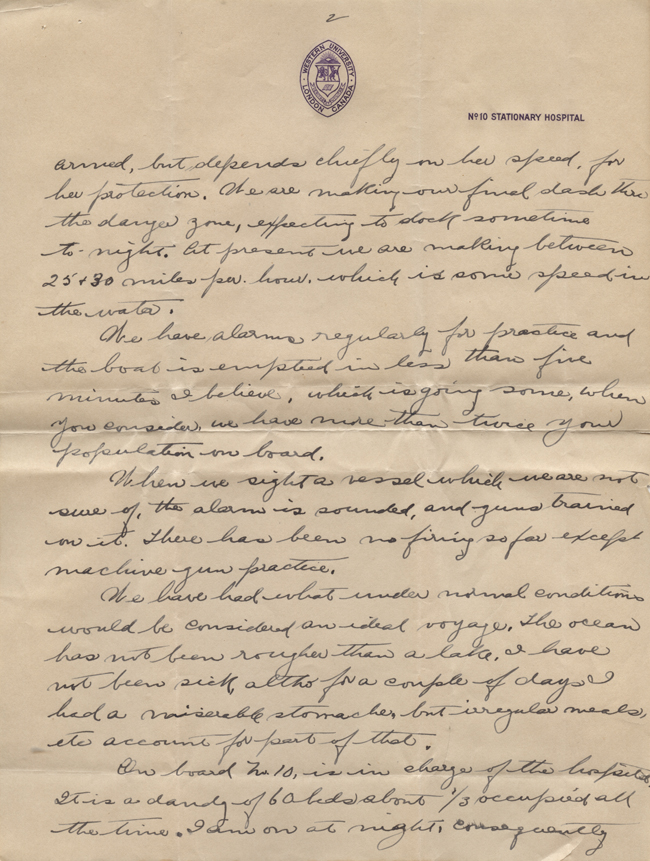 2
WESTERN UNIVERSITY
LONDON CANADA
Nº10 STATIONARY HOSPITAL
armed, but depends chiefly on her speed, for
her protection. We are making our final dash thru
the danger zone, expecting to dock sometime
to-night. At present we are making between
25+30 miles per. hour. which is some speed in
the water.
We have alarms regularly for practice and
the boat is emptied in less than five
minutes I believe, which is going some, when
you consider, we have more than twice your
population on board.
When we sight a vessel which we are not
sure of, the alarm is sounded, and guns trained
on it. There has been no firing so far except
machine gun practice.
We have had what under normal conditions
would be considered an ideal voyage. The ocean
has not been rougher than a lake. I have
not been sick, altho for a couple of days I
had a miserable stomache, but irregular meals,
etc account for part of that.
On board No. 10, is in charge of the hospital.
It is a dandy of 60 beds about 1/3 occupied all
the time. I am on at night, consequently